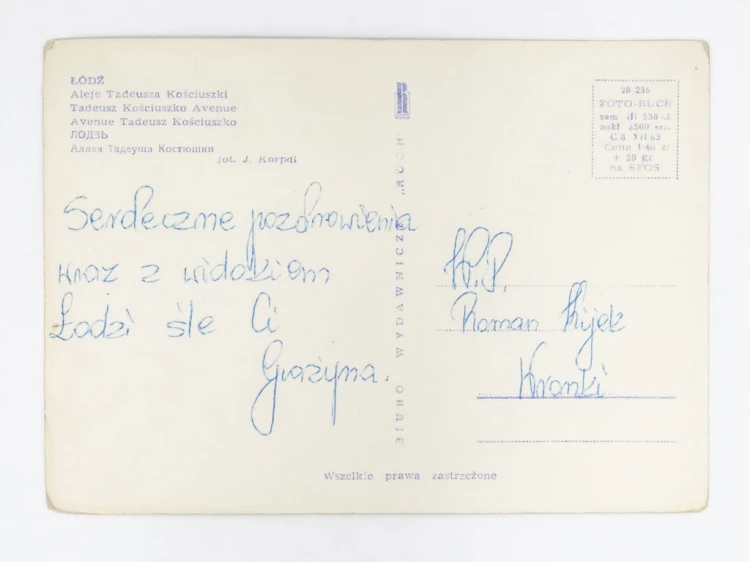 ŁÓDŹ
Aleje Tadeusza Kościuszki
Tadeusz Kościuszko Avenue
Avenue Tadeusz Kościuszko
ЛОДЗЬ
Аллея Тадеуша Костюшки
fot. J. Korpal
Serdeczne pozdrowienia
wraz z widokiem
Łodzi śle Ci
Grażyna.
BIURO WYDAWNICZE „RUCH"
28 236
FOTO-RUCH
zam.
nakł. 3500
Cena 1·40 zł
+ 20 gr
na SFOS
W.P.
Roman Kijek
Kronki
Wszelkie prawa zastrzeżone